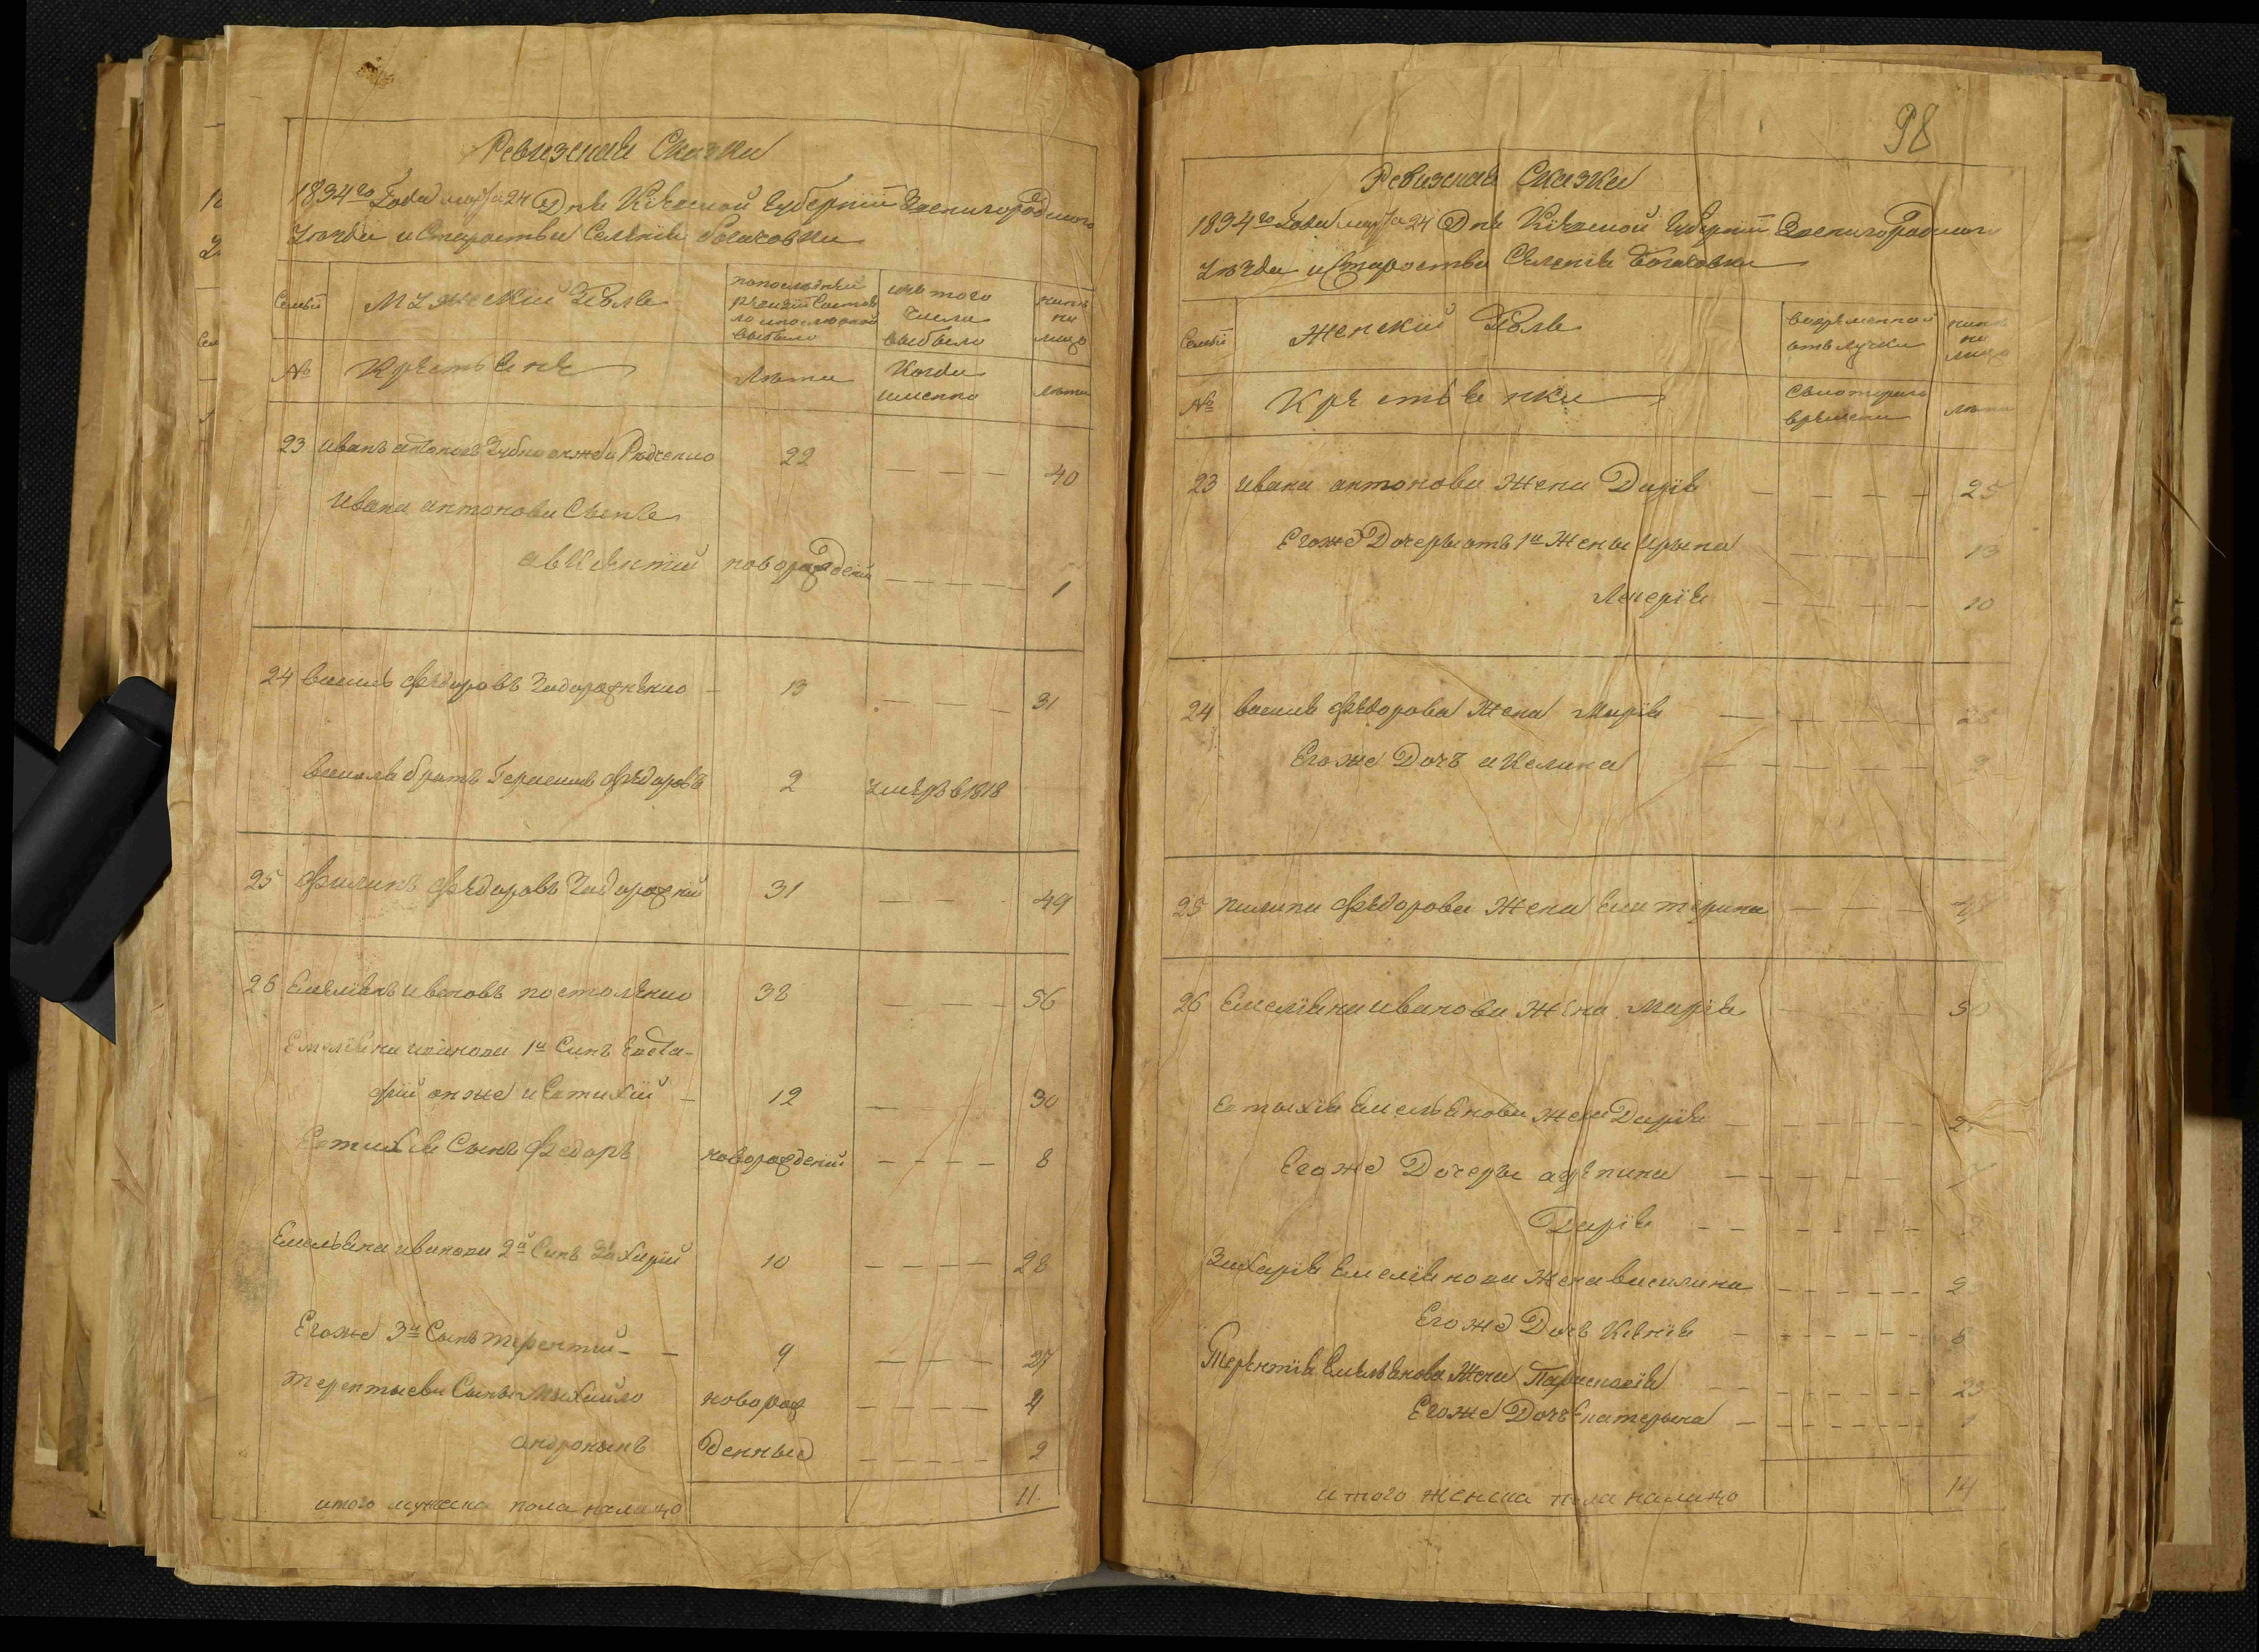 Ревизская Сказка
1834го Года мая 24 Дня Кіевской Губерніи Звенигородскаго
Уѣзда и Староства Селенія Богачовки
Семьи
Мужескій Полъ
по последней
ревизіи Состоя
ло и после оной
выбыло
изъ того
числа
выбыло
нынѣ
на
лицо
№
Крестьяне
Лѣта
Когда
именно
лѣта
23 Иванъ антоновъ онже и Рѣдченко 22 — — — 40
Ивана антонова Сынъ
авксентій новорожденій — — — — 1
24 василь Федоровъ Задорожненко — 13 — — — 31
василя братъ Герасимъ Федоровъ 2 умеръ в 1818
25 Филипъ Федоровъ Задорожній 31 — — 49
26 Емеліянъ ивановъ постоленко 38 — — — 56
Емеліяна иванова 1й Синъ Евста-
фій онже и Евтихій — 12 — 30
Евтихія Сынъ Федоръ новорожденій — — — — 8
Емельяна иванова 2й Синъ Захарій 10 — — — — 28
Егоже 3й Сынъ терентій — — 9 — — — 27
терентыева Сыны Михайло новорож — — — — 4
андроникъ денные — — — — — 2
итого мужеска пола налицо 11.
98
Ревизская Сказка
1834го Года мая 24 Дня Кіевской Губерніи Звенигородскаго
Уѣзда и Староства Селенія Богачовки
Семьи
Женскій Полъ
во временной
отълучки
нынѣ
на
лицо
№
Крестьянки
Скотораго
времени
лѣта
23 Ивана антонова Жена Дарія — — — — 25
Егоже Дочеры отъ 1й Жены Ирына — — — — 13
Лукерія — — — — 10
24 василя Федорова Жена Марія — — — — 25
Егоже Дочъ акелина — — — — — 9
25 пилипа Федорова Жена Екатерина — — — —
26 Емеліяна иванова Жена Марія — — — 50
Евтыхія Емельянова жена Дарія — — — —
Егоже Дочеры — — — — —
Дарія — — — — —
Захарія Емеліянова Жена василина — — — — — —
Егоже Дочъ Ксенія — — — — — — 6
Терентія Емельянова Жена Параскевія — — — — — 23
Егоже Дочъ Екатерына — — — — — — 1
итого женска пола налицо 14